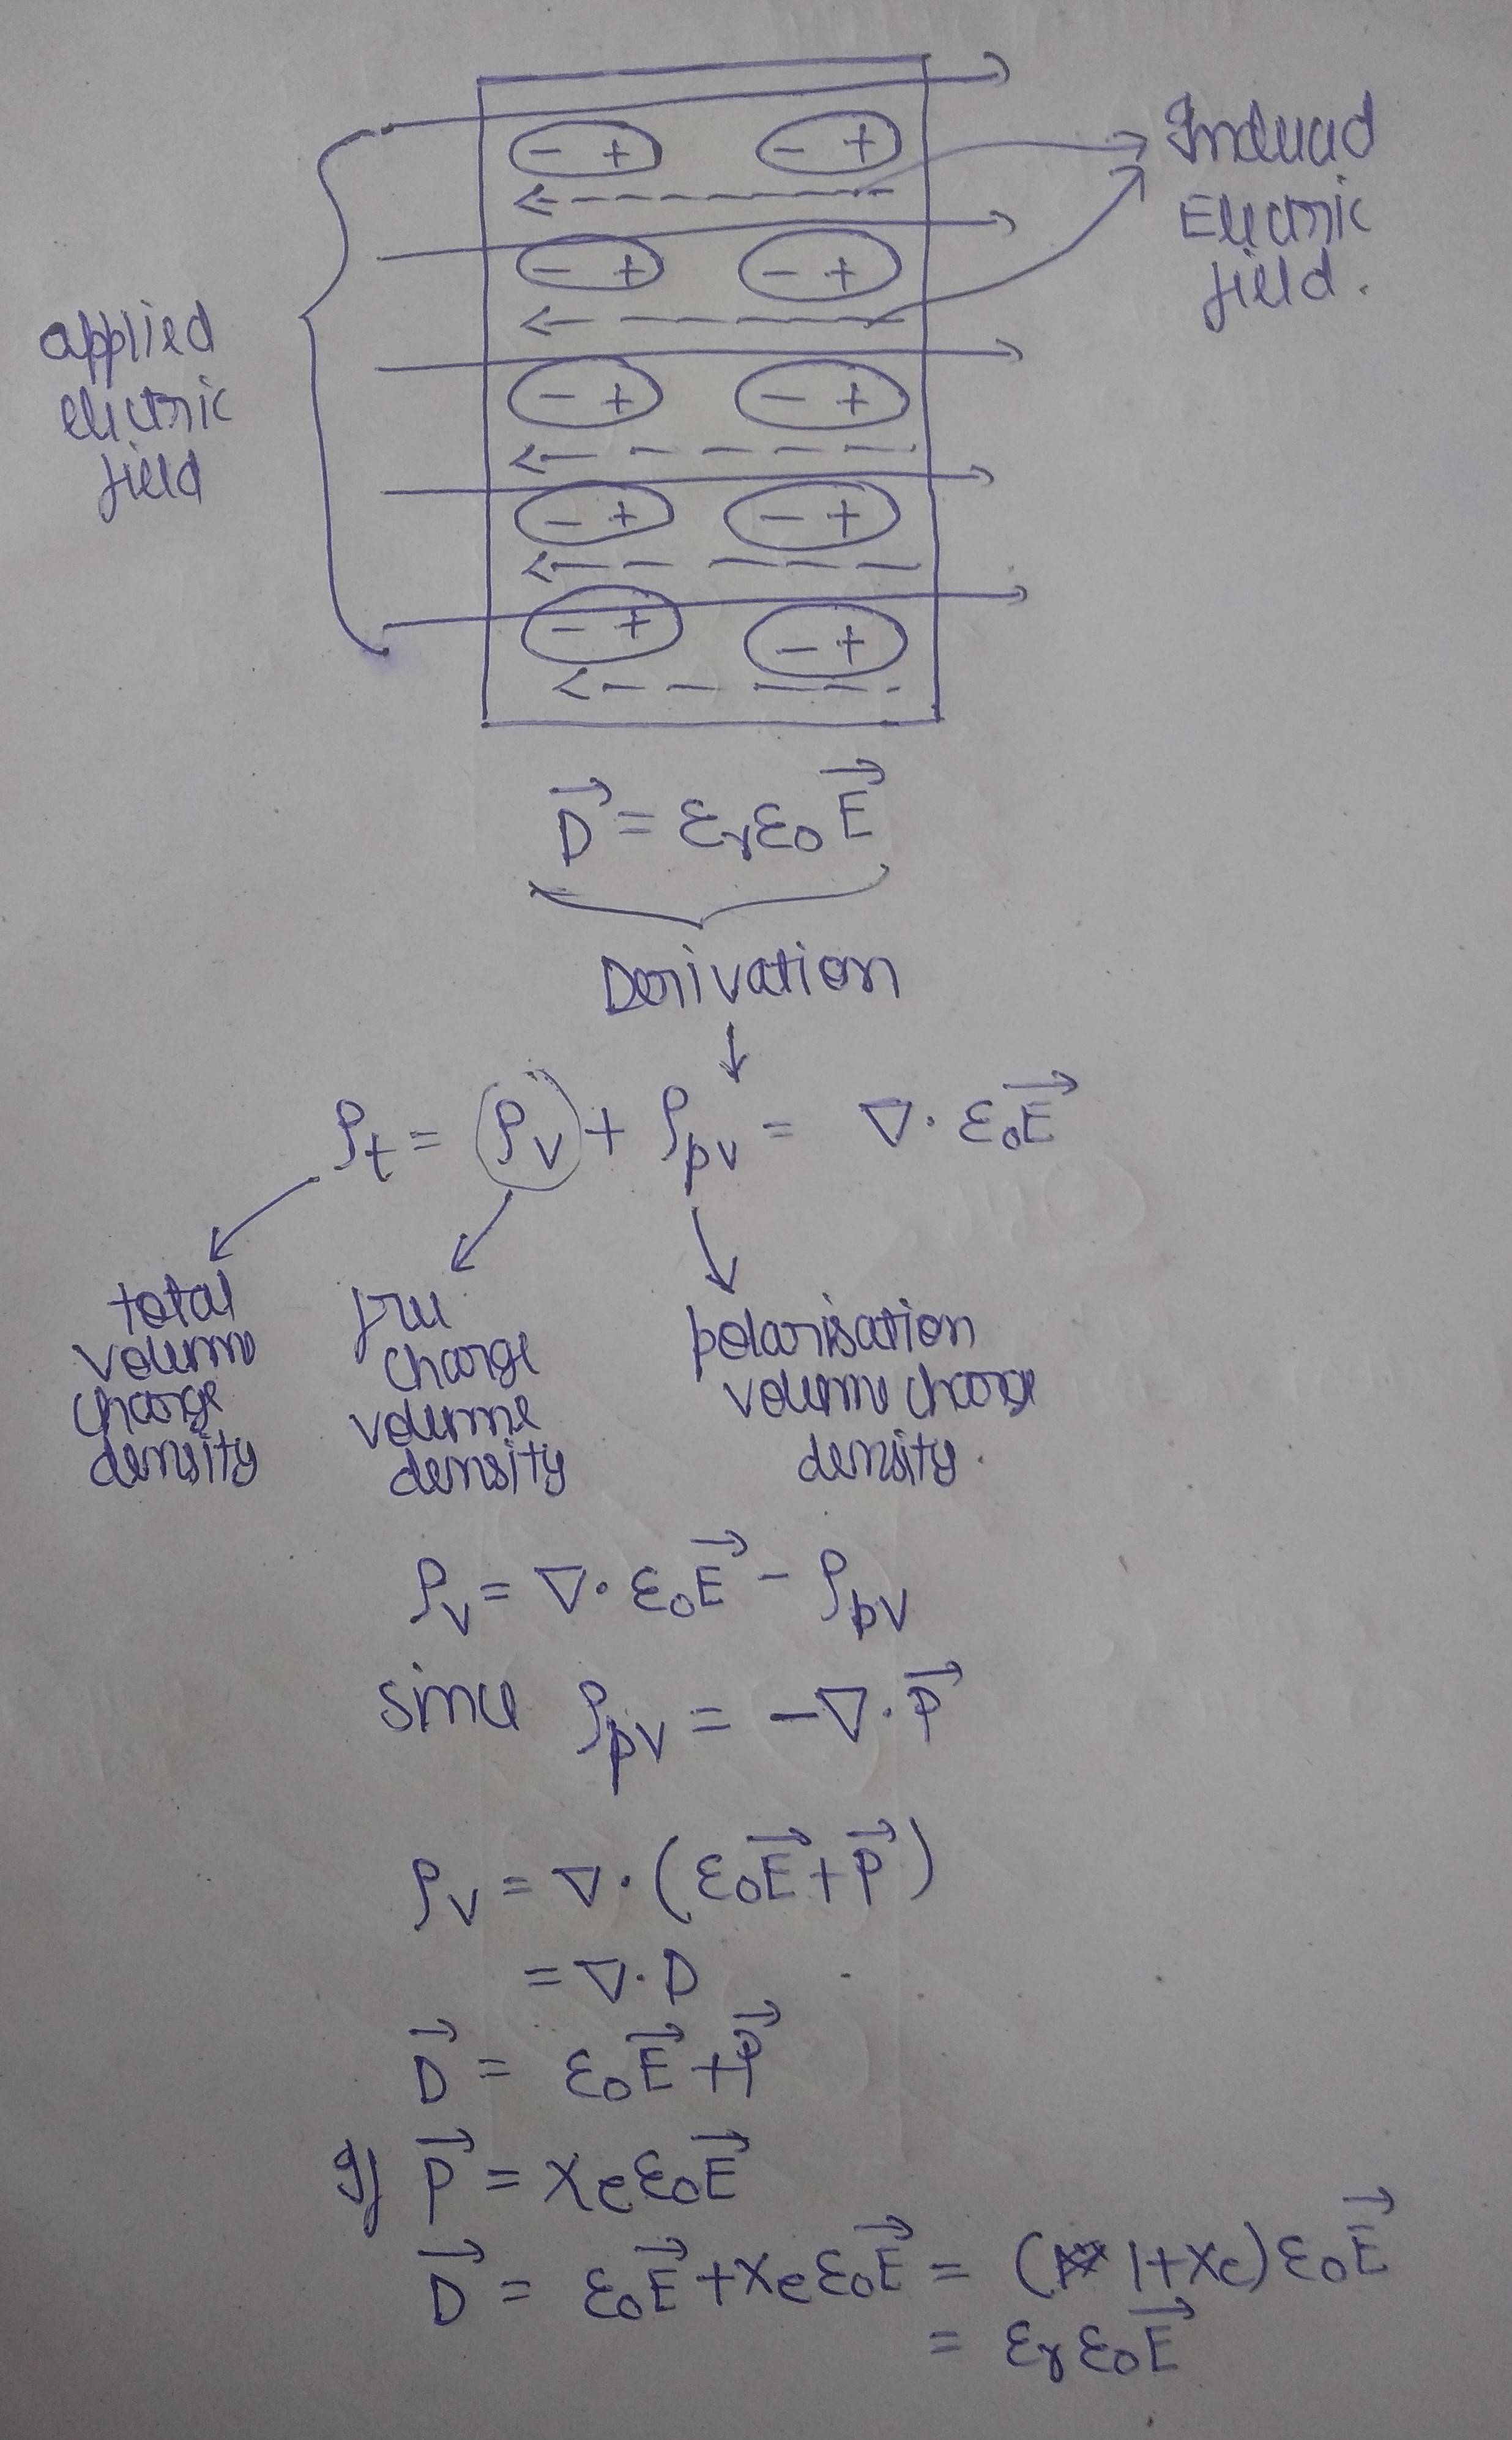 applied
electric
field
- + - +
- + - +
- + - +
- + - +
- + - +
Induced
Electric
field.
D⃗ = εᵣε₀E⃗
Derivation
↓
ρₜ = ρᵥ + ρₚᵥ = ∇. ε₀E⃗
total
volume
charge
density
free
charge
volume
density
polarisation
volume charge
density.
ρᵥ = ∇. ε₀E⃗ - ρₚᵥ
since ρₚᵥ = -∇.P⃗
ρᵥ = ∇.(ε₀E⃗+P⃗)
= ∇.D
D⃗ = ε₀E⃗ + P⃗
If P⃗ = χₑε₀E⃗
D⃗ = ε₀E⃗ + χₑε₀E⃗ = (1+χₑ)ε₀E⃗
= εᵣε₀E⃗